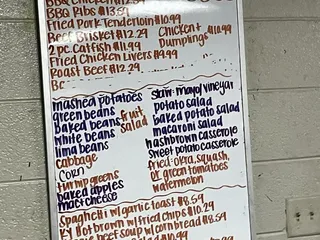 BBQ Chicken $12.29
BBQ Ribs $13.59
Fried Pork Tenderloin $10.99
Beef Brisket $12.29
Chicken + Dumplings $10.99
2 pc Catfish $11.99
Fried Chicken Livers $9.99
Roast Beef $12.29
mashed potatoes
green beans
baked beans
white beans
lima beans
cabbage
corn
turnip greens
baked apples
maci cheese
fruit salad
slaw: mayo/vinegar
potato salad
baked potato salad
macaroni salad
hashbrown casserole
sweet potato casserole
fried: okra, squash,
or green tomatoes
watermelon
Spaghetti w/ garlic toast $8.59
KY Hot brown w/ fried chips $10.29
beef soup w/ corn bread $8.59
salad $10.99